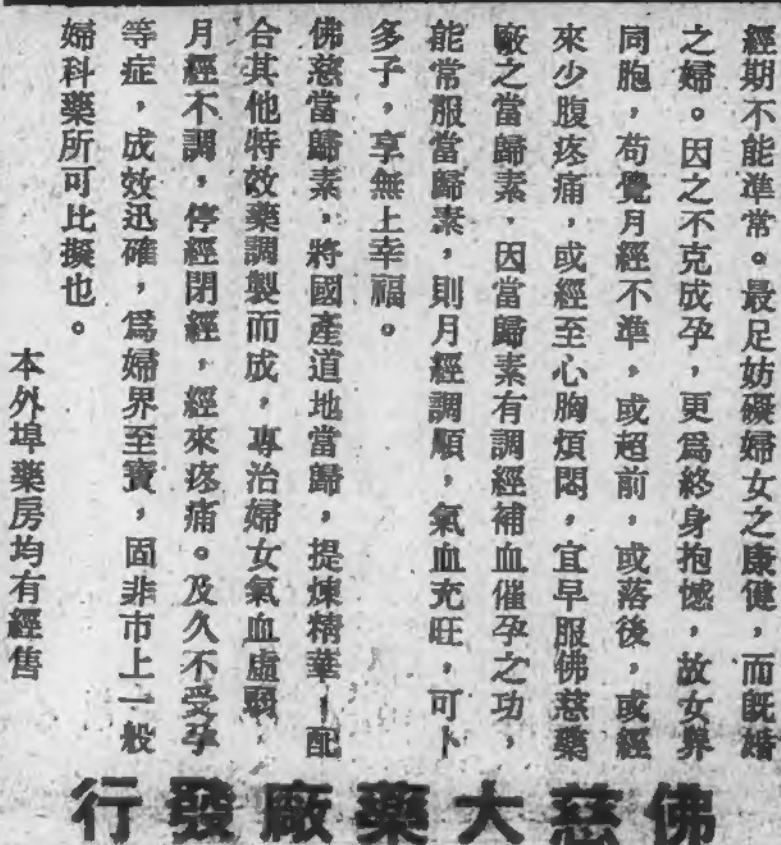 經期不能準常。最足妨礙婦女之康健,而既婚
之婦。因之不克成孕,更爲終身抱憾,故女界
同胞,苟覺月經不準,或超前,或落後,或經
來少腹疼痛,或經至心胸煩悶,宜早服佛慈藥
廠之當歸素,因當歸素有調經補血催孕之功,
能常服當歸素,則月經調順,氣血充旺,可卜
多子,享無上幸福。
佛慈當歸素,將國產道地當歸,提煉精華,配
合其他特效藥調製而成,專治婦女氣血虛弱,
月經不調,停經閉經,經來疼痛。及久不受孕
等症,成效迅確,爲婦界至寶,固非市上一般
婦科藥所可比擬也。
本外埠藥房均有經售
佛慈大藥廠發行